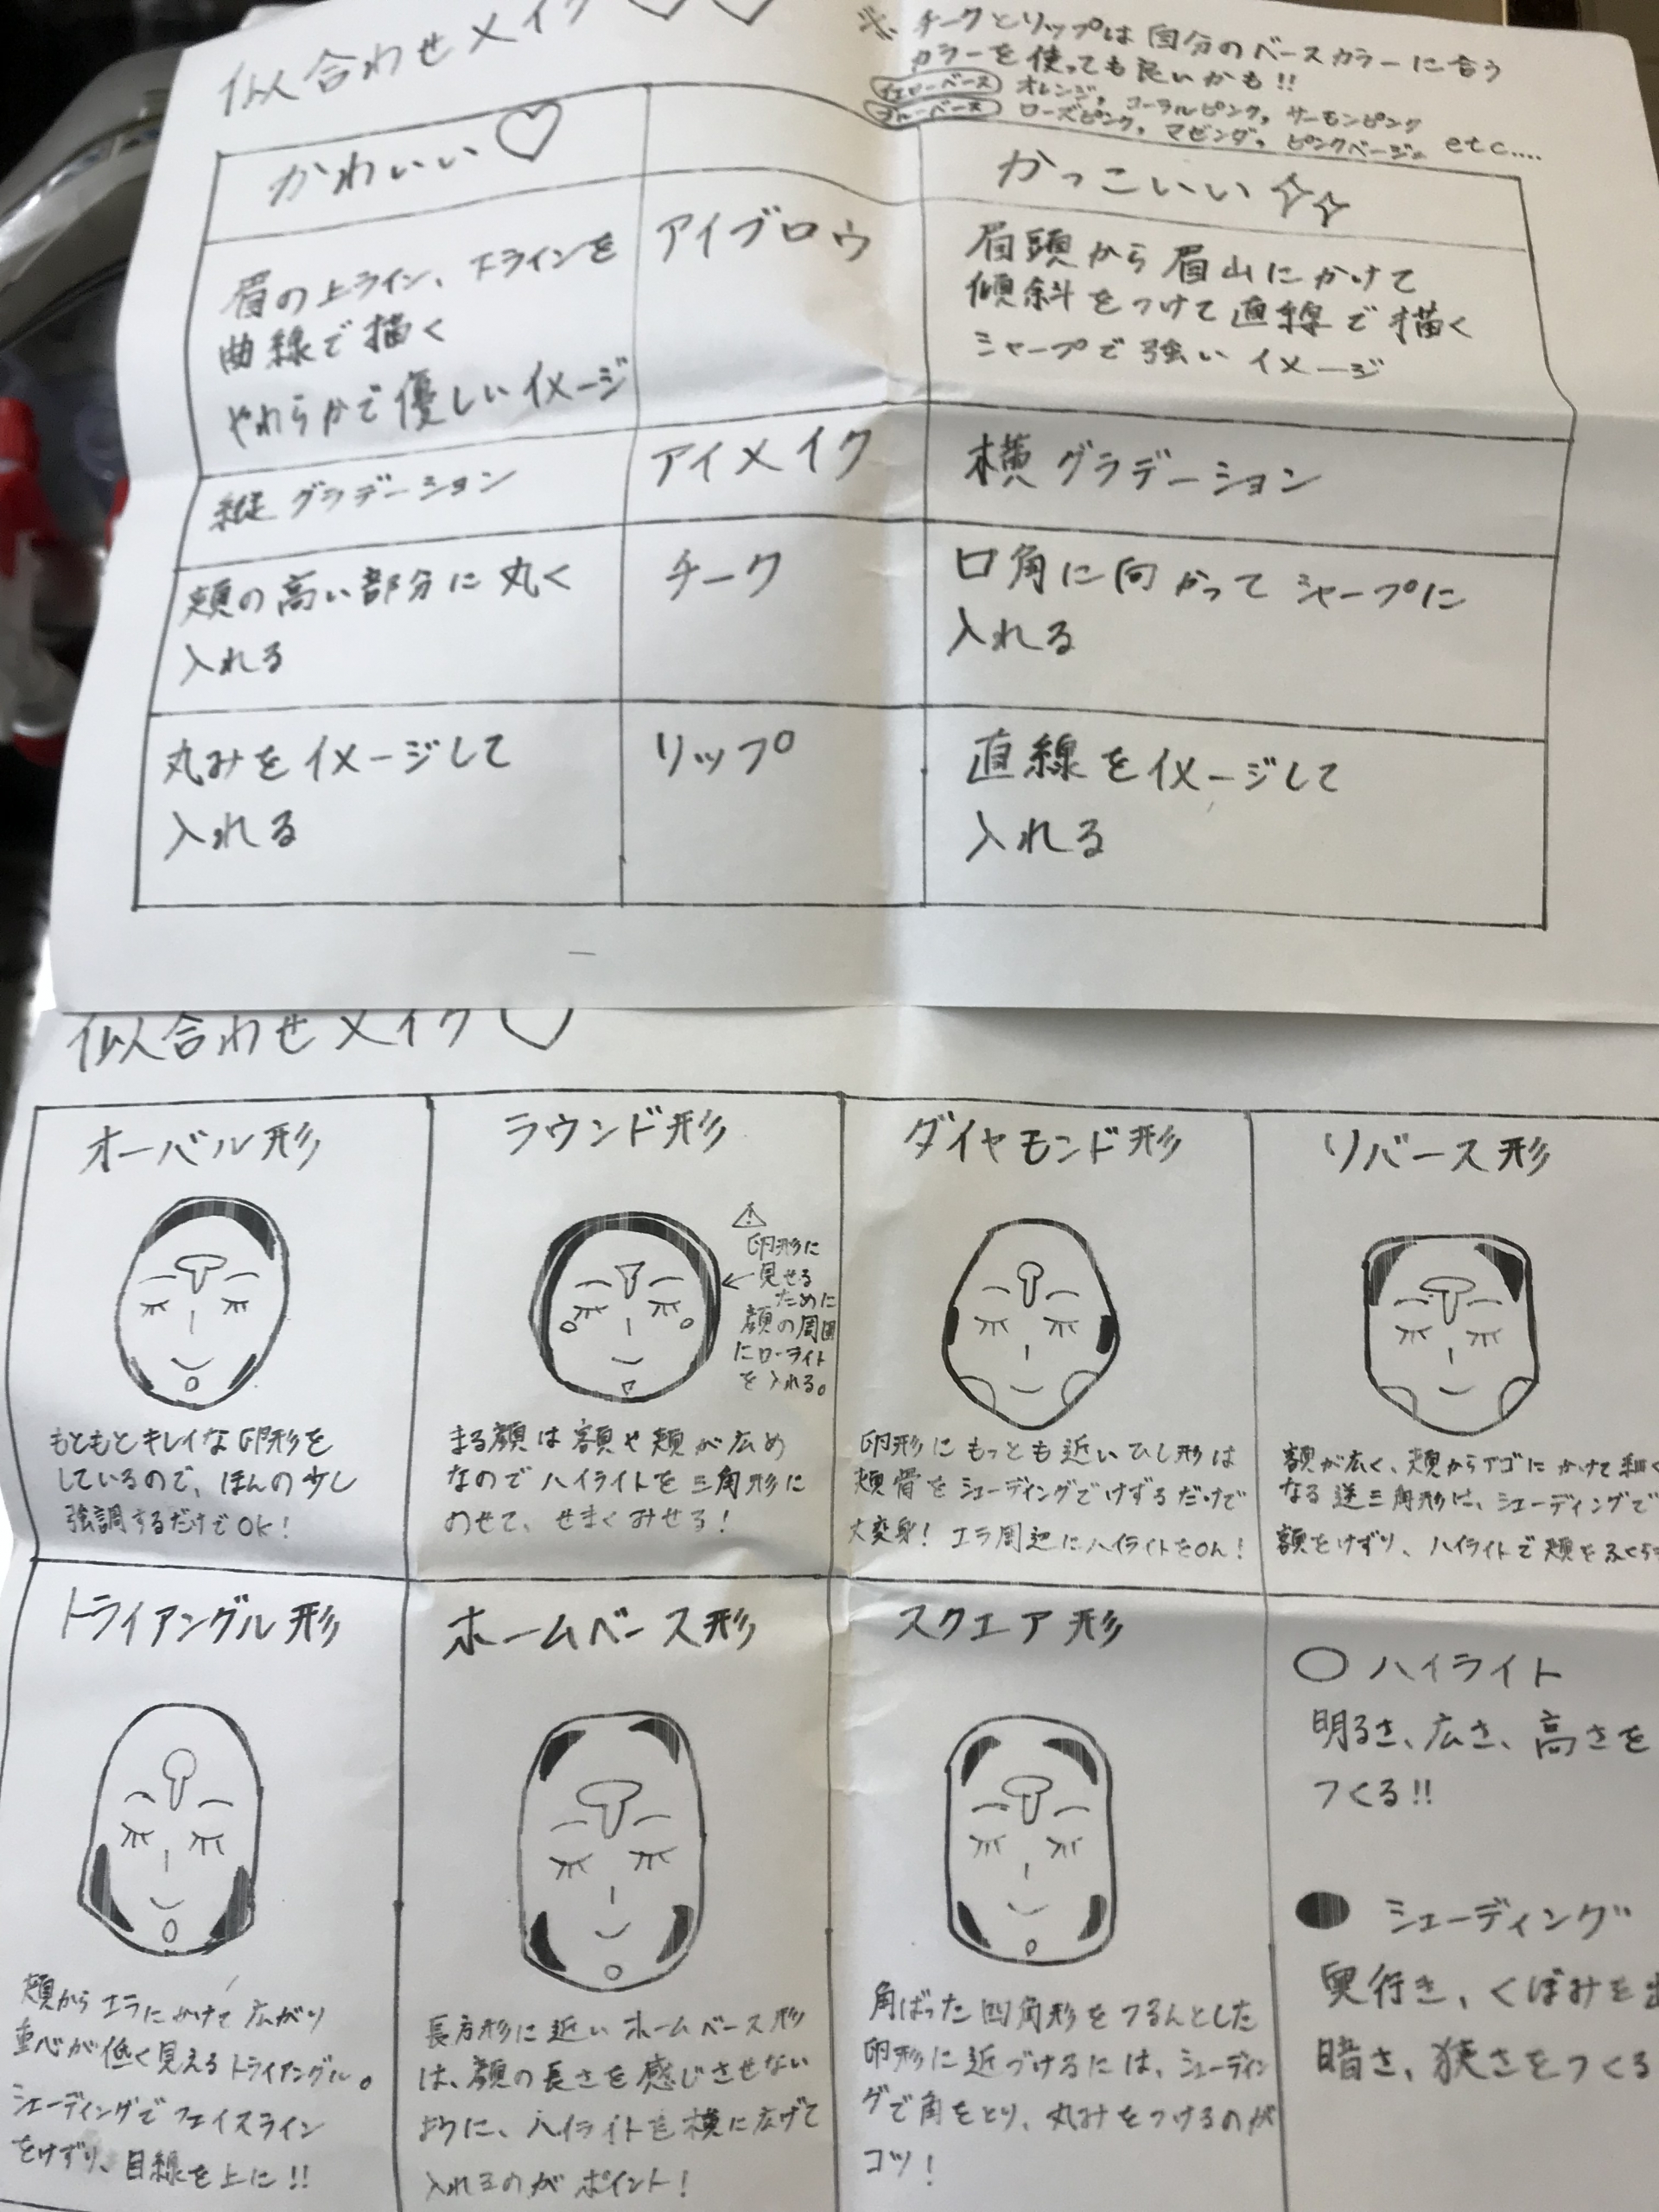 似合わせメイク
※ チークとリップは自分のベースカラーに合う
カラーを使っても良いかも!!
イエローベース オレンジ, コーラルピンク, サーモンピンク
ブルーベース ローズピンク, マゼンダ, ピンクベージュ etc....
かわいい♡
かっこいい
眉の上ライン、下ラインを
曲線で描く
やわらかで優しいイメージ
アイブロウ
眉頭から眉山にかけて
傾斜をつけて直線で描く
シャープで強いイメージ
縦グラデーション
アイメイク
横グラデーション
頬の高い部分に丸く
入れる
チーク
口角に向かってシャープに
入れる
丸みをイメージして
入れる
リップ
直線をイメージして
入れる
似合わせメイク♡
オーバル形
もともとキレイな卵形を
しているので、ほんの少し
強調するだけでOK!
ラウンド形
卵形に
見せる
ために
顔の周囲
にローライト
を入れる。
まる顔は額や頬が広め
なのでハイライトを三角形に
のせて、せまくみせる!
ダイヤモンド形
卵形にもっとも近いひし形は
頬骨をシェーディングでけずるだけで
大変身! エラ周辺にハイライトをon!
リバース形
額が広く、頬からアゴにかけて細く
なる逆三角形は、シェーディングで
額をけずり、ハイライトで頬をふくら
トライアングル形
頬からエラにかけて広がり
重心が低く見えるトライアングル。
シェーディングでフェイスライン
をけずり、目線を上に!!
ホームベース形
長方形に近いホームベース形
は、顔の長さを感じさせない
ように、ハイライトを横に広げて
入れるのがポイント!
スクエア形
角ばった四角形をつるんとした
卵形に近づけるには、シェーディン
グで角をとり、丸みをつけるのが
コツ!
ハイライト
明るさ、広さ、高さを
つくる!!
シェーディング
奥行き、くぼみを
暗さ、狭さをつくる